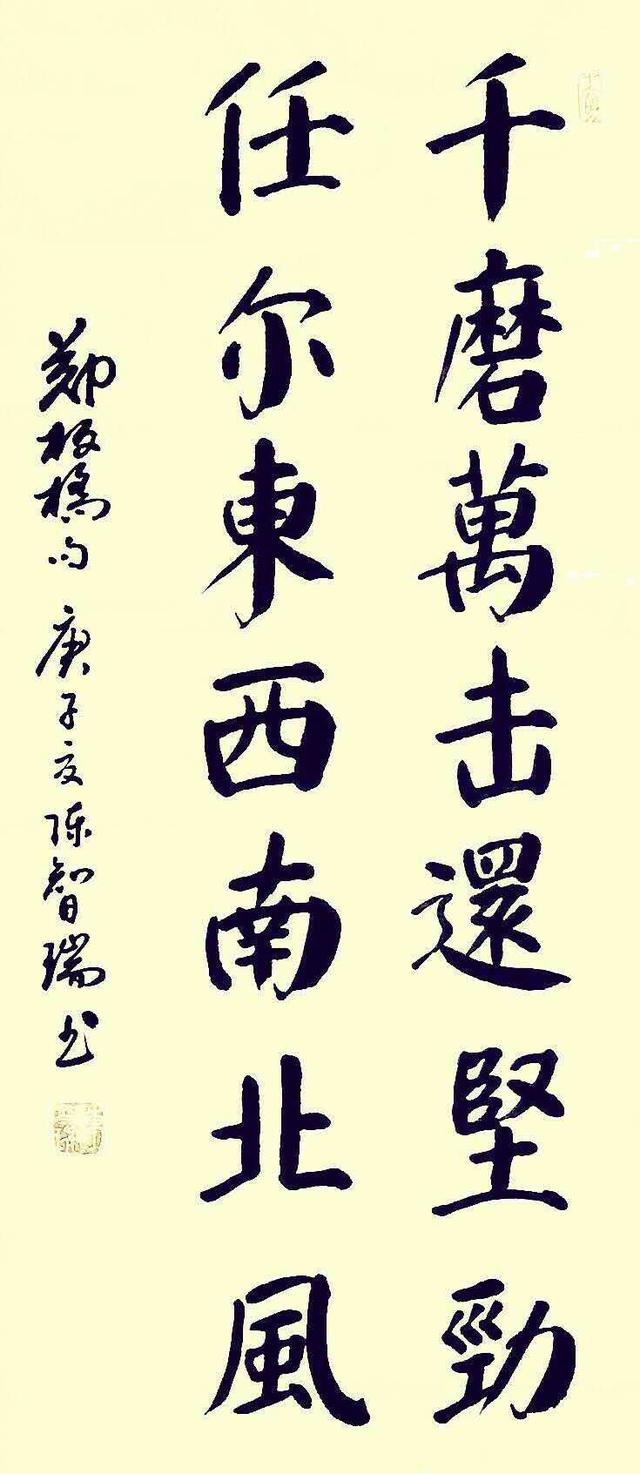 千磨萬击還堅勁
任尔東西南北風
鄭板橋句 庚子夏陈智瑞书